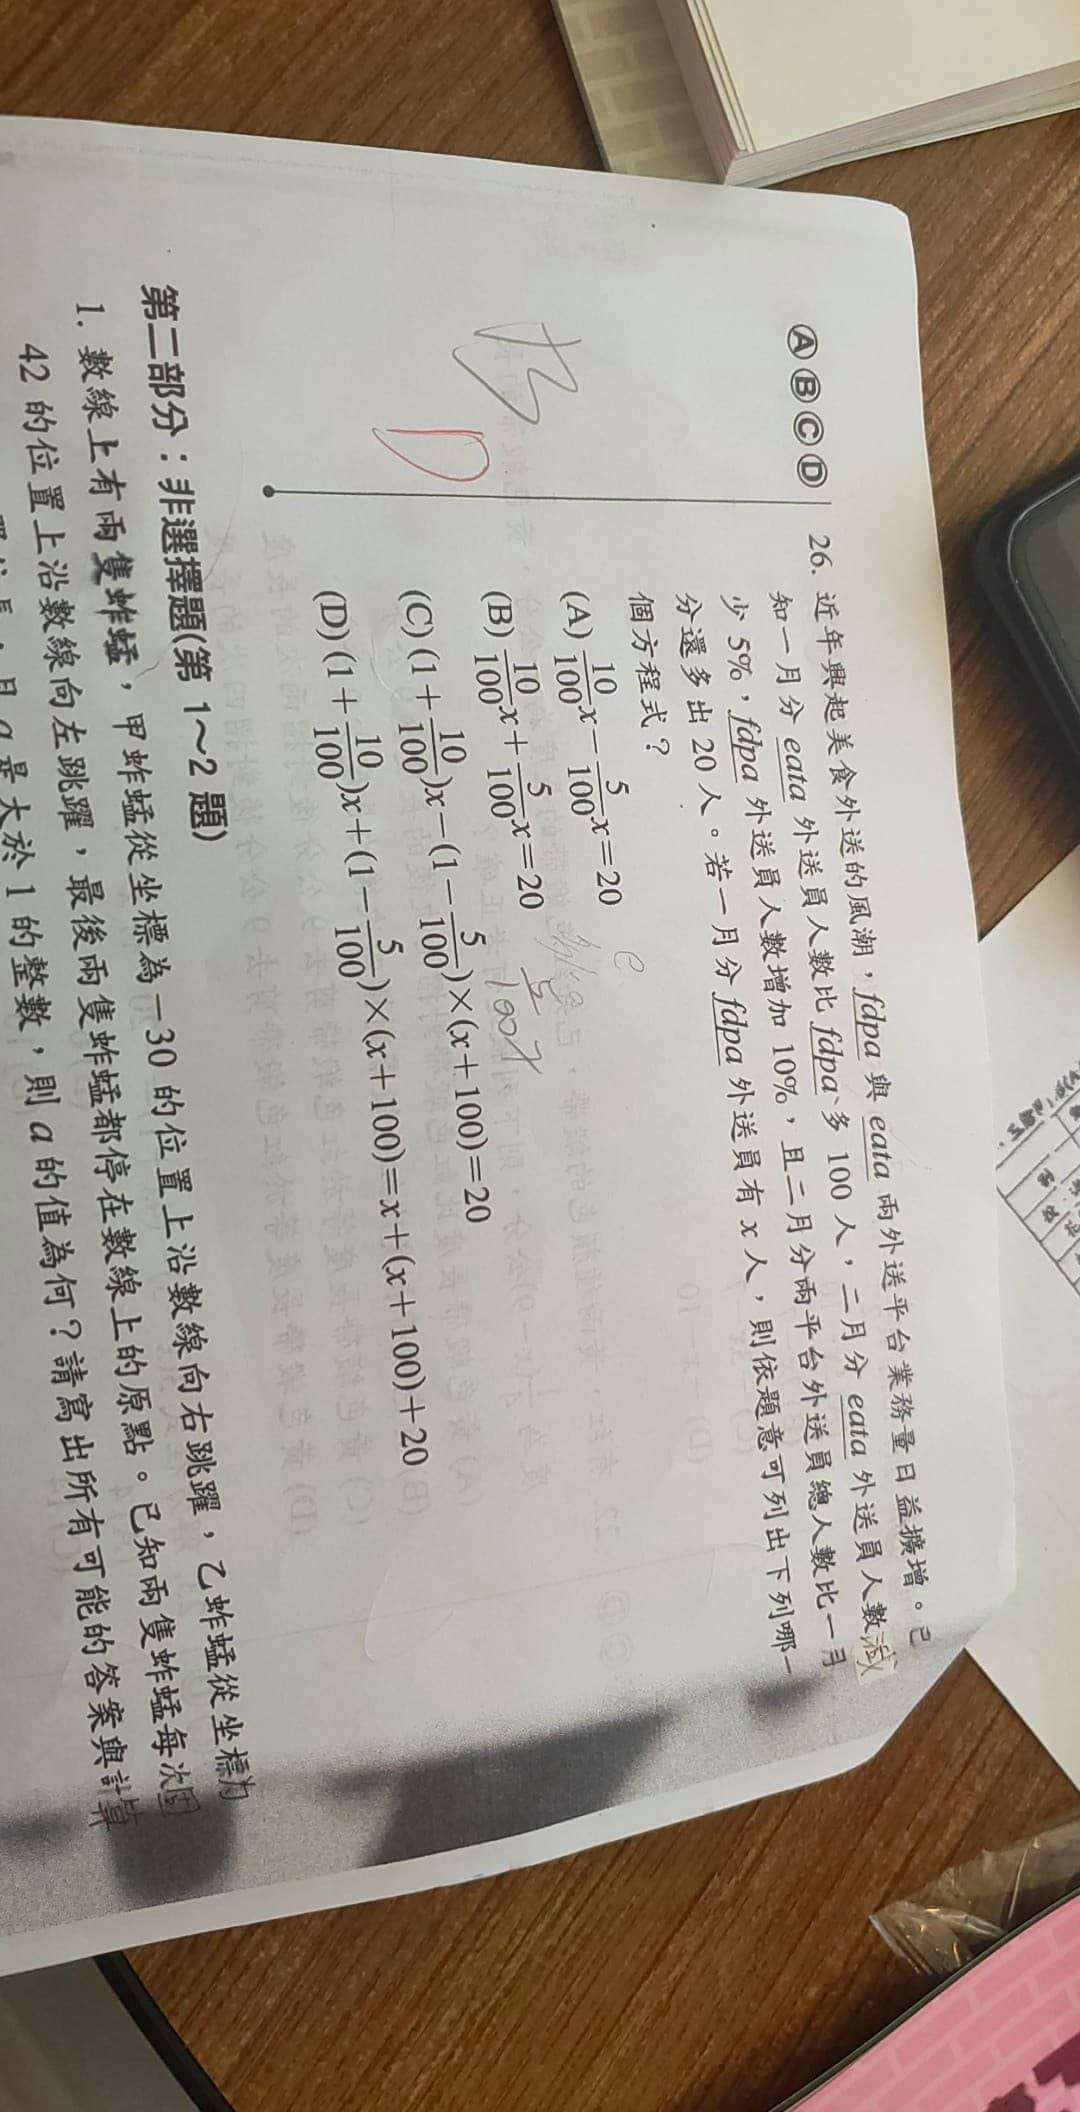 ⒶⒷⒸⒹ
26. 近年興起美食外送的風潮，fdpa 與 eata 兩外送平台業務量日益擴增。已
知一月分 eata 外送員人數比 fdpa 多 100 人，二月分 eata 外送員人數減
少 5%，fdpa 外送員人數增加 10%，且二月分兩平台外送員總人數比一月
分還多出 20 人。若一月分 fdpa 外送員有 x 人，則依題意可列出下列哪一
個方程式？
(A) 10/100 x − 5/100 x = 20
(B) 10/100 x + 5/100 x = 20
(C) (1 + 10/100)x − (1 − 5/100) × (x + 100) = 20
(D) (1 + 10/100)x + (1 − 5/100) × (x + 100) = x + (x + 100) + 20
e
D
第二部分：非選擇題(第 1～2 題)
1. 數線上有兩隻蚱蜢，甲蚱蜢從坐標為－30 的位置上沿數線向右跳躍，乙蚱蜢從坐標為
42 的位置上沿數線向左跳躍，最後兩隻蚱蜢都停在數線上的原點。已知兩隻蚱蜢每次固
且 a 是大於 1 的整數，則 a 的值為何？請寫出所有可能的答案與計算